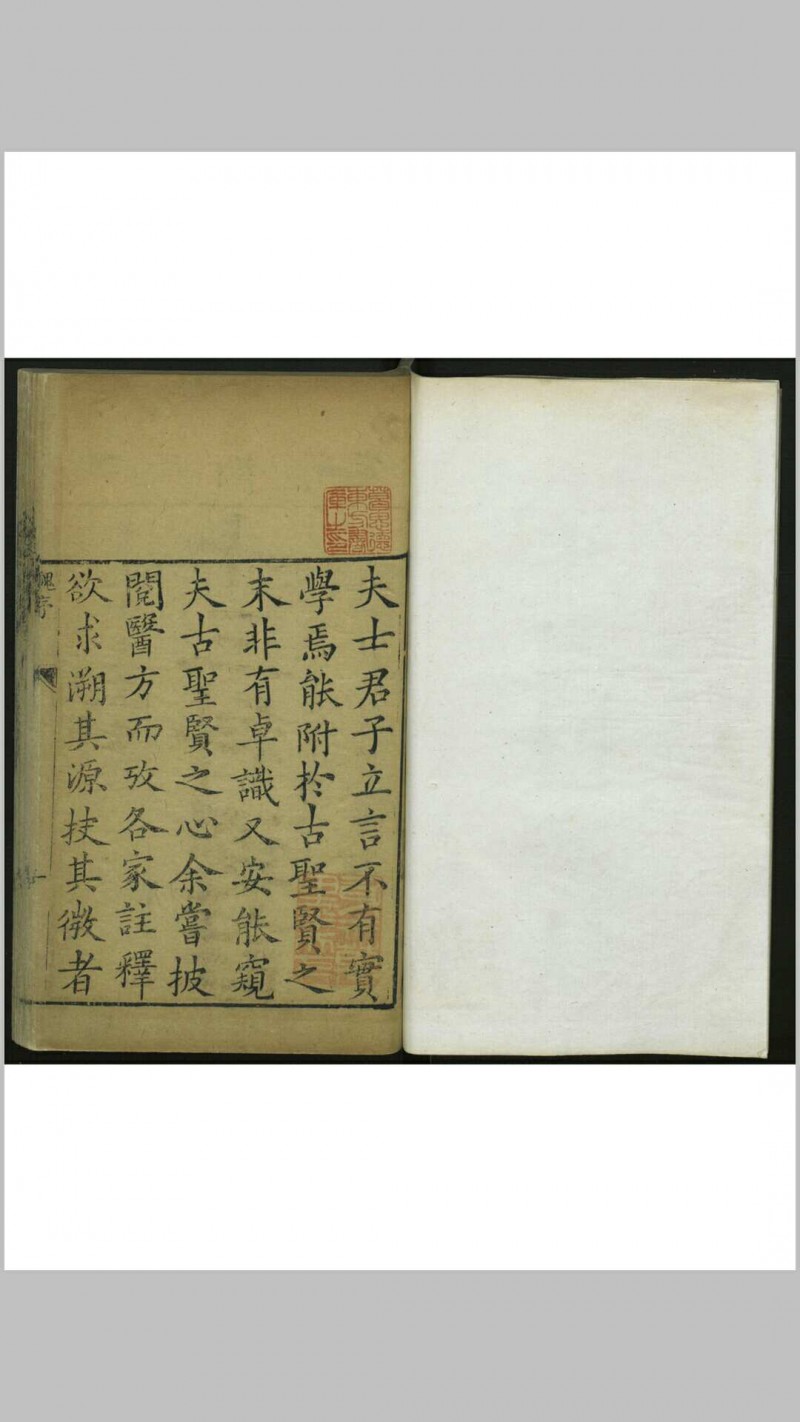 夫士君子立言不有實
學焉能附於古聖賢之
末非有卓識又安能窺
夫古聖賢之心余嘗披
閱醫方而攷各家註釋
欲求溯其源扶其微者